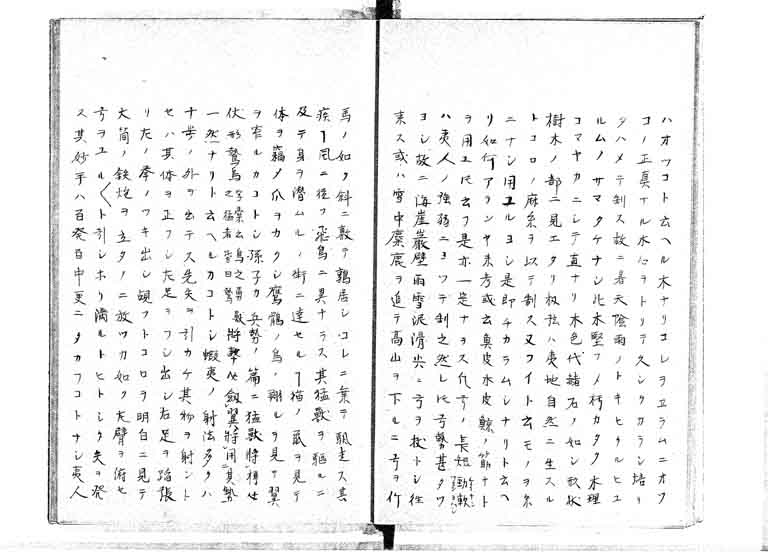 ハオツコト云ヘル木ナリコレヲエラムニオフ
コノ正真ナル木ヲトリテ久シクカラシ培リ
タハメテ制ス故ニ春天陰雨ノトキヒタルヒユ
ルムノサマタケナシ此木堅フメ朽カタク木理
コマヤカニシテ直ナリ木色代赭石ノ如シ形状
樹木ノ部ニ見エタリ弦ハ夷地自然ニ生スル
トコロノ麻糸ヲ以テ制ス又フイト云モノヲ糸
ニナシ用ユルヨシ是即チカラムシナリト云ヘ
リ如何アランヤ未考或云真皮水皮鯨ノ筋ナト
ヲ用ユ是亦一是ナラス弓ノ長短勁軟
ハ夷人ノ強弱ニヨツテ制之然レ圧弓勢甚タツ
ヨシ故ニ海崖巌壁雨雪泥滑尖ニ弓ヲ杖トシ往
来ス或ハ雪中麋鹿ヲ追テ高山ヲ下ルニ弓ヲ行
馬ノ如ク斜ニ敦テ鶉居シコレニ乗テ馳走ス其
疾風ニ従フ飛鳥ニ異ナラス其猛獣ヲ駆ルニ
及テ身ヲ潜ムルノ術ニ達セルヿ猫ノ鼠ヲ見テ
体ヲ竊メ爪ヲカクシ鷹鶻ノ鳥ノ翔ルヲ見テ翼
ヲ窄ルカコトシ孫子カ兵勢ノ篇ニ猛獣将搏必
伏形鷙鳥将撃必斂翼将用其勢
一然ナリト云ヘルカコトシ蝦夷ノ射法多クハ
十歩ノ外ヲ出テス先矢ヲ引カケ其物ヲ射ント
セハ其体ヲ正フシ左足ヲフシ出シ右足ヲ踏張
リ左ノ拳ノワキ出シ覘フトコロヲ明白ニ見テ
大筒ノ鉄炮ヲ立タメニ放ツカ如ク左臂ヲ俯セ
弓ヲユル〱ト引シホリ満ルトヒトシク矢ヲ発
ス其妙手ハ百発百中更ニタカフコトナシ夷人